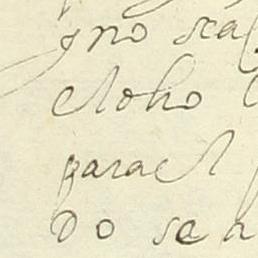 y no sea
el oho
para el
Do se a